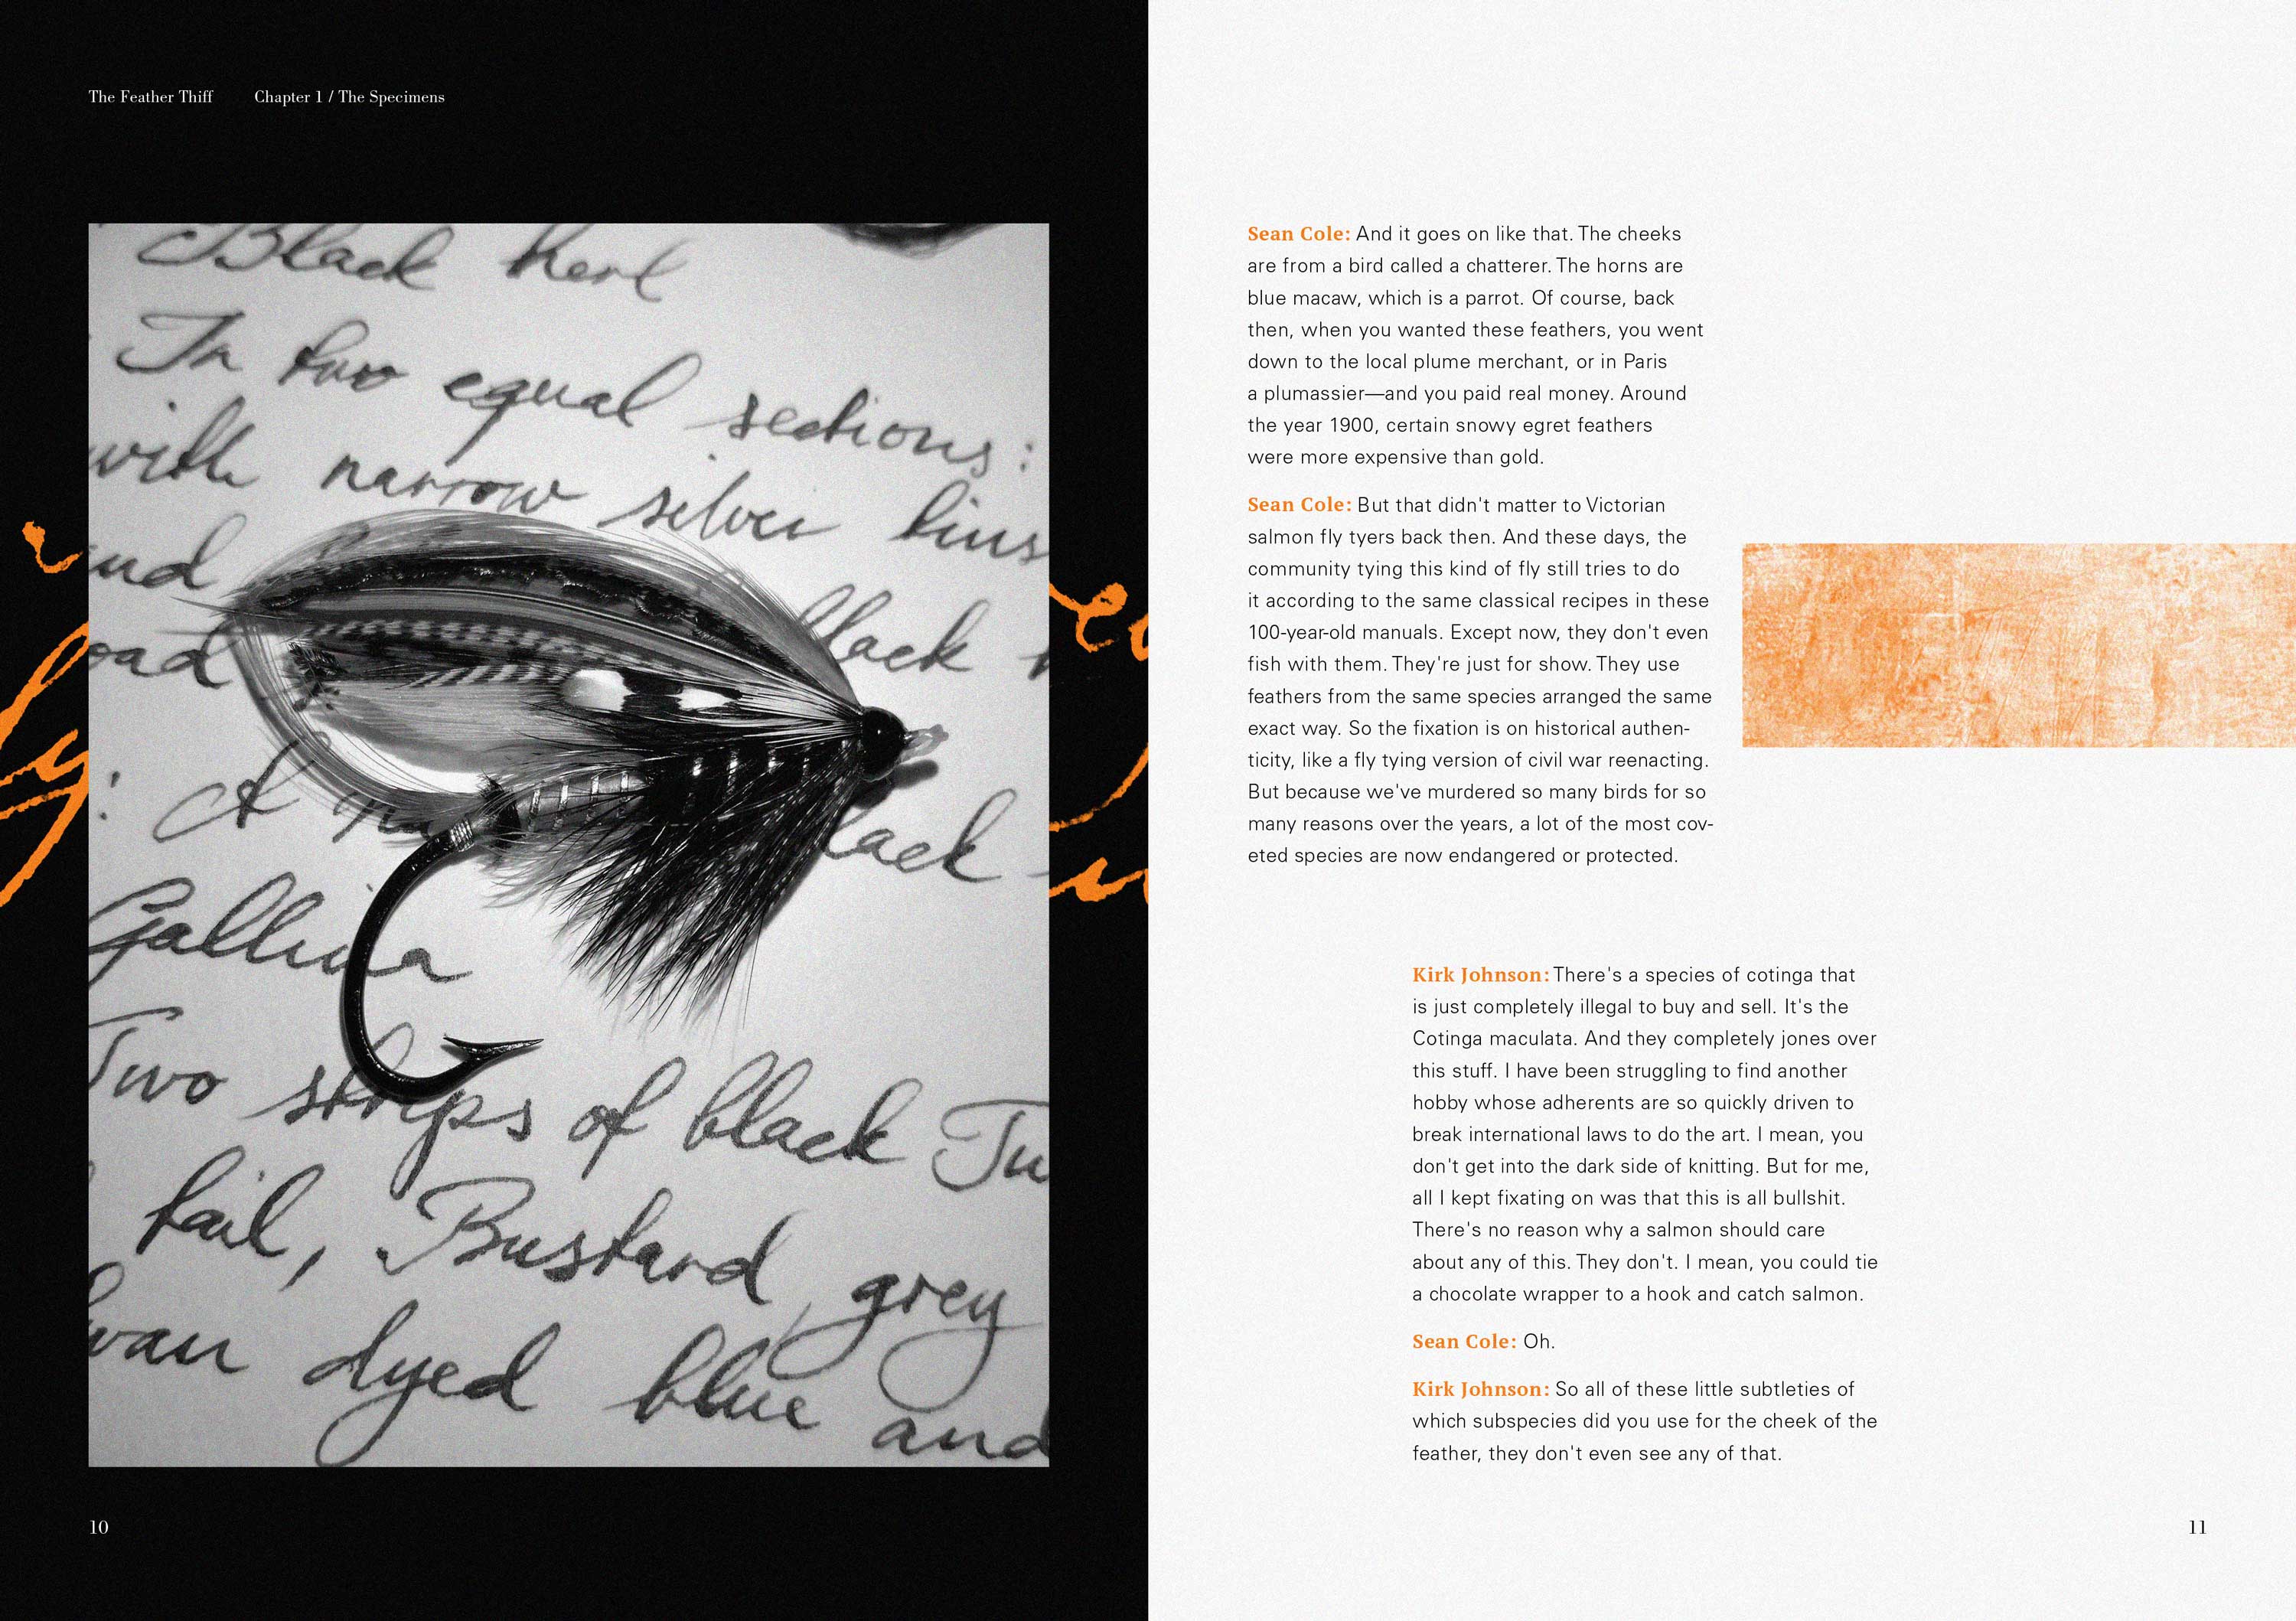 The Feather Thiff Chapter 1 / The Specimens
Black herl
In two equal sections:
with narrow silver
and
black
: A
black
Gallina
Two strips of black Tu
tail, Bustard, grey
dyed blue and
10
Sean Cole: And it goes on like that. The cheeks
are from a bird called a chatterer. The horns are
blue macaw, which is a parrot. Of course, back
then, when you wanted these feathers, you went
down to the local plume merchant, or in Paris
a plumassier—and you paid real money. Around
the year 1900, certain snowy egret feathers
were more expensive than gold.
Sean Cole: But that didn't matter to Victorian
salmon fly tyers back then. And these days, the
community tying this kind of fly still tries to do
it according to the same classical recipes in these
100-year-old manuals. Except now, they don't even
fish with them. They're just for show. They use
feathers from the same species arranged the same
exact way. So the fixation is on historical authen-
ticity, like a fly tying version of civil war reenacting.
But because we've murdered so many birds for so
many reasons over the years, a lot of the most cov-
eted species are now endangered or protected.
Kirk Johnson: There's a species of cotinga that
is just completely illegal to buy and sell. It's the
Cotinga maculata. And they completely jones over
this stuff. I have been struggling to find another
hobby whose adherents are so quickly driven to
break international laws to do the art. I mean, you
don't get into the dark side of knitting. But for me,
all I kept fixating on was that this is all bullshit.
There's no reason why a salmon should care
about any of this. They don't. I mean, you could tie
a chocolate wrapper to a hook and catch salmon.
Sean Cole: Oh.
Kirk Johnson: So all of these little subtleties of
which subspecies did you use for the cheek of the
feather, they don't even see any of that.
11